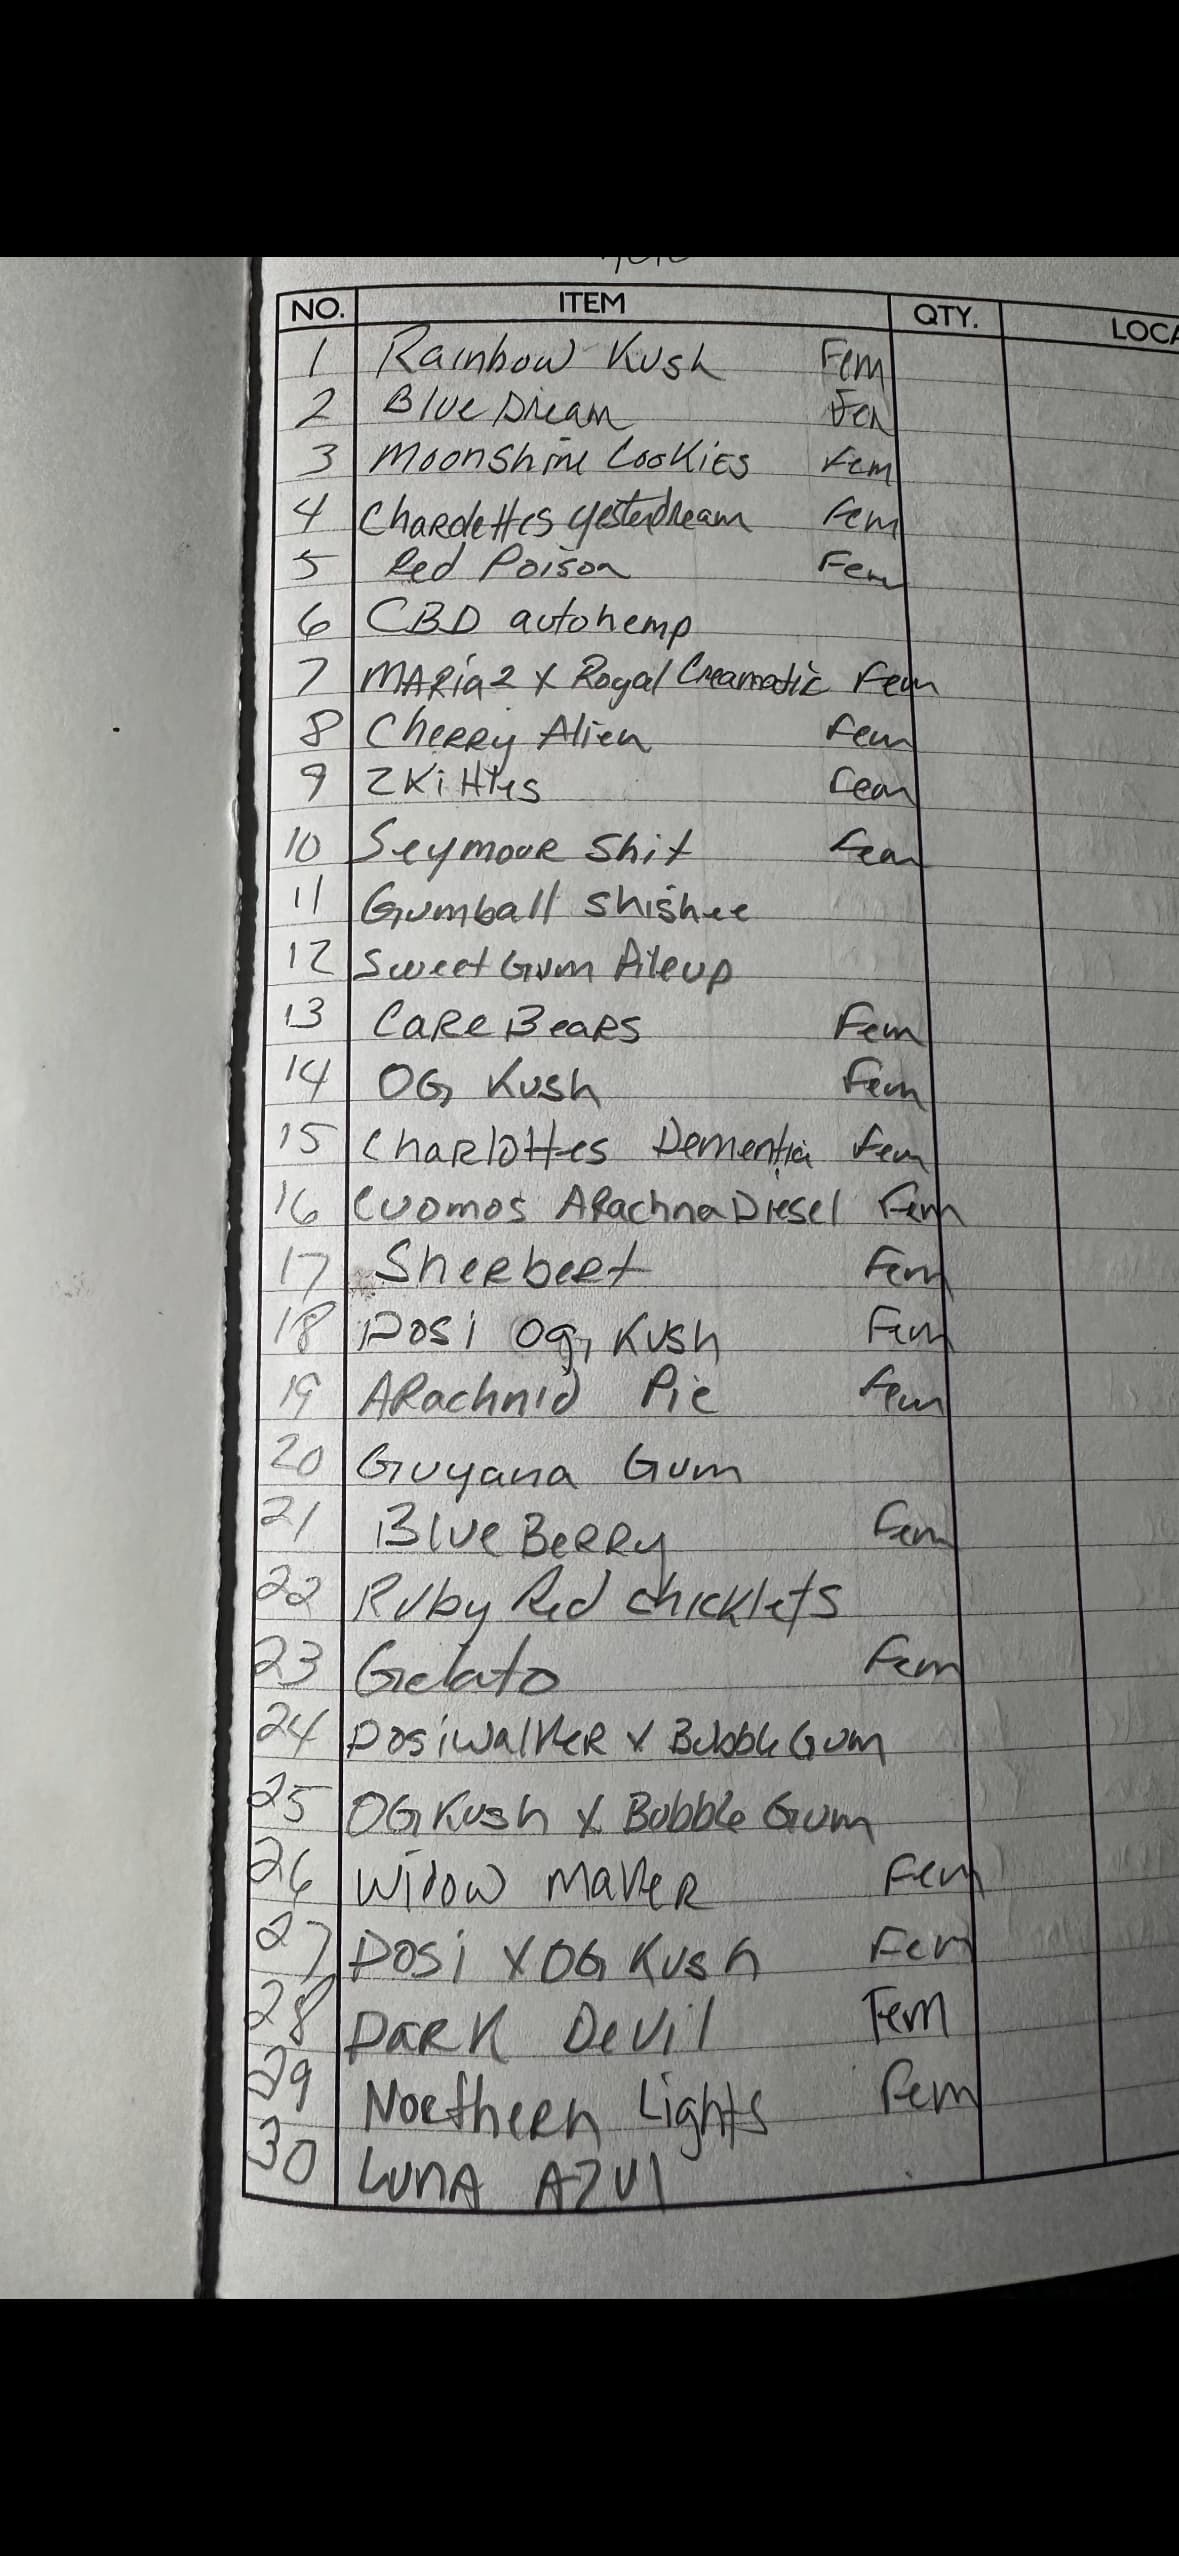 NO. ITEM QTY. LOCA
1 Rainbow Kush Fem
2 Blue Dream Fem
3 Moonshine Cookies Fem
4 Chardettes yesterdream Fem
5 Red Poison Fem
6 CBD autohemp
7 MARia2 X Royal Creamatic Fem
8 Cherry Alien Fem
9 Zkittles Fem
10 Seymour Shit Fem
11 Gumball Shishee
12 Sweet Gum Pileup
13 Care Bears Fem
14 OG Kush Fem
15 Charlottes Dementia Fem
16 Cuomos Arachna Diesel Fem
17 Sheerbert Fem
18 Dosi Og Kush Fem
19 Arachnid Pie Fem
20 Guyana Gum
21 Blue Berry Fem
22 Ruby Red chicklets
23 Gelato Fem
24 Dosiwalker x Bubble Gum
25 OG Kush X Bubble Gum
26 Widow Maker Fem
27 Dosi X OG Kush Fem
28 Dark Devil Fem
29 Northern Lights Fem
30 Luna Azul